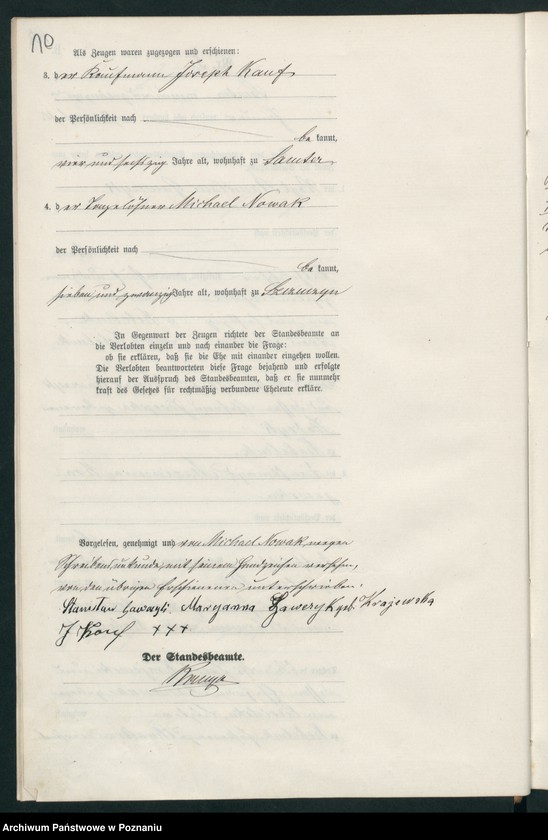 10
Als Zeugen waren zugezogen und erschienen:
3. der Kaufmann Joseph Kauf
der Persönlichkeit nach
be kannt,
vier und sechszig Jahre alt, wohnhaft zu Samter
4. der Tagelöhner Michael Nowak
der Persönlichkeit nach
be kannt,
sieben und zwanzig Jahre alt, wohnhaft zu
In Gegenwart der Zeugen richtete der Standesbeamte an
die Verlobten einzeln und nach einander die Frage:
ob sie erklären, daß sie die Ehe mit einander eingehen wollen.
Die Verlobten beantworteten diese Frage bejahend und erfolgte
hierauf der Ausspruch des Standesbeamten, daß er sie nunmehr
kraft des Gesetzes für rechtmäßig verbundene Eheleute erkläre.
Vorgelesen, genehmigt und von Michael Nowak wegen
Schreibensunkunde mit seinem Handzeichen versehen,
von den übrigen Erschienenen unterschrieben.
Stanislaw Maryanna geb. Krajewska
J Kauf +++
Der Standesbeamte.
Archiwum Państwowe w Poznaniu